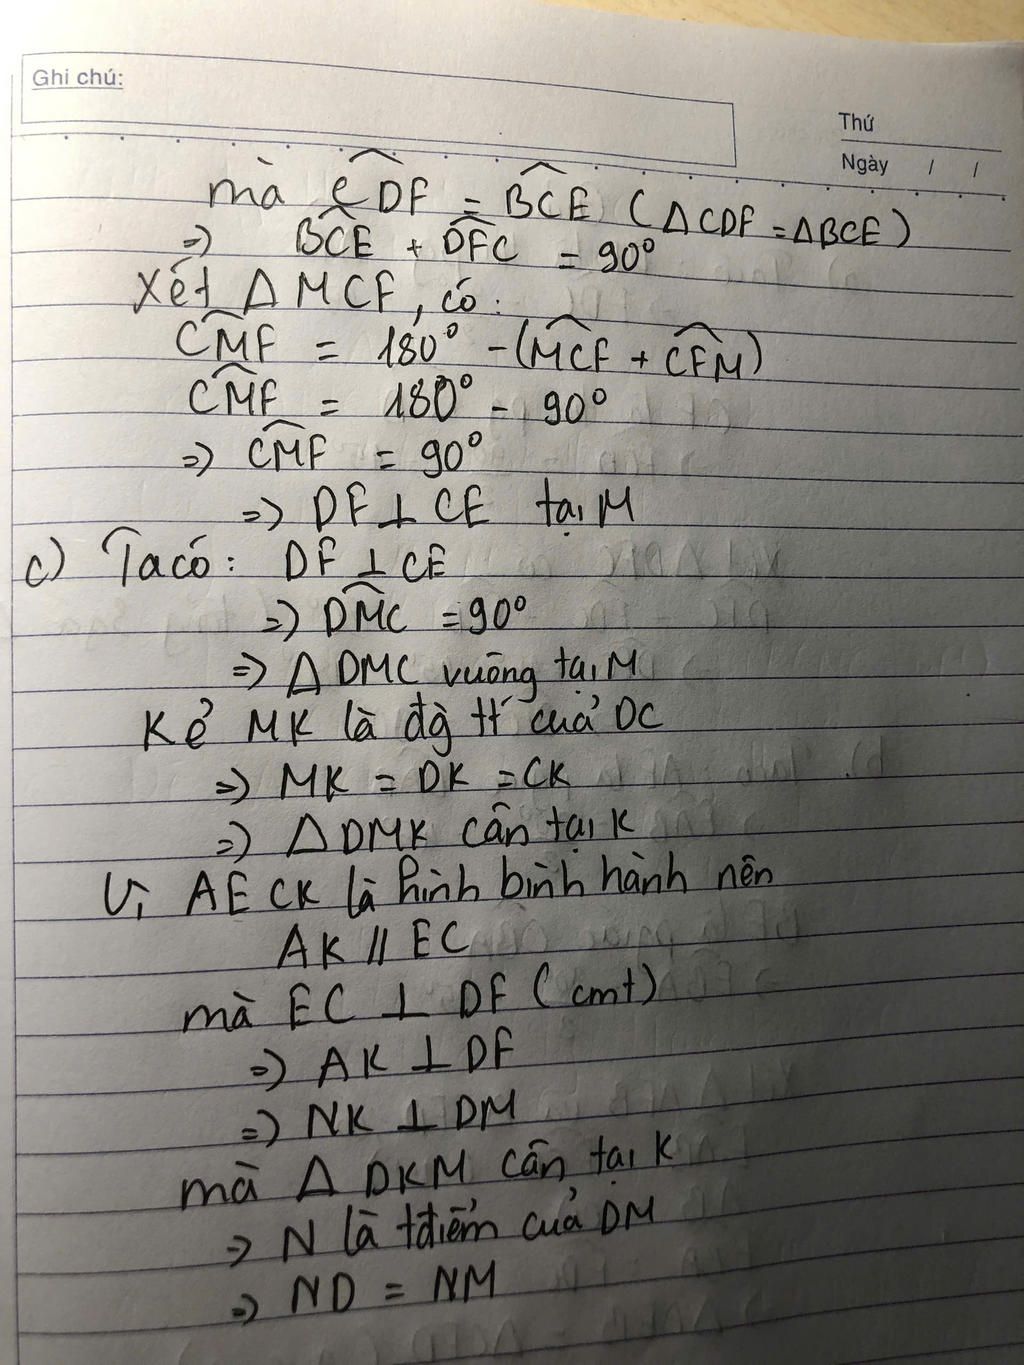 Ghi chú:
Thứ
Ngày / /
mà CDF = BCE (ΔCDF = ΔBCE)
=> BCE + DFC = 90°
Xét Δ MCF, có:
CMF = 180° - (MCF + CFM)
CMF = 180° - 90°
=> CMF = 90°
=> DF ⊥ CE tại M
c) Ta có: DF ⊥ CE
=> DMC = 90°
=> Δ DMC vuông tại M
Kẻ MK là đg tt của DC
=> MK = DK = CK
=> Δ DMK cân tại K
Vì AECK là hình bình hành nên
AK // EC
mà EC ⊥ DF (cmt)
=> AK ⊥ DF
=> NK ⊥ DM
mà Δ DKM cân tại K
=> N là tđiểm của DM
=> ND = NM